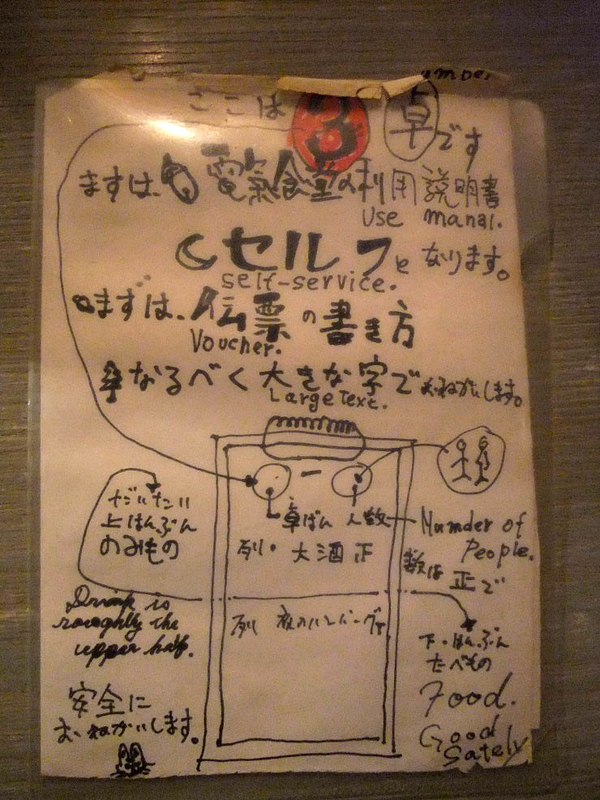 ここは 3 卓です
まずは、電氣食堂の利用説明書
Use manal.
セルフとなります。
self-service.
まずは、伝票の書き方
Voucher.
なるべく大きな字でおねがいします。
Large Texc.
卓ばん 人数
Number of
People.
だいたい
上はんぶん
のみもの
列・大酒正
数は正で
Drink is
roughly the
upper half.
列 夜のハンバーグ
下・はんぶん
たべもの
Food.
安全に
おねがいします。
Good
Sately